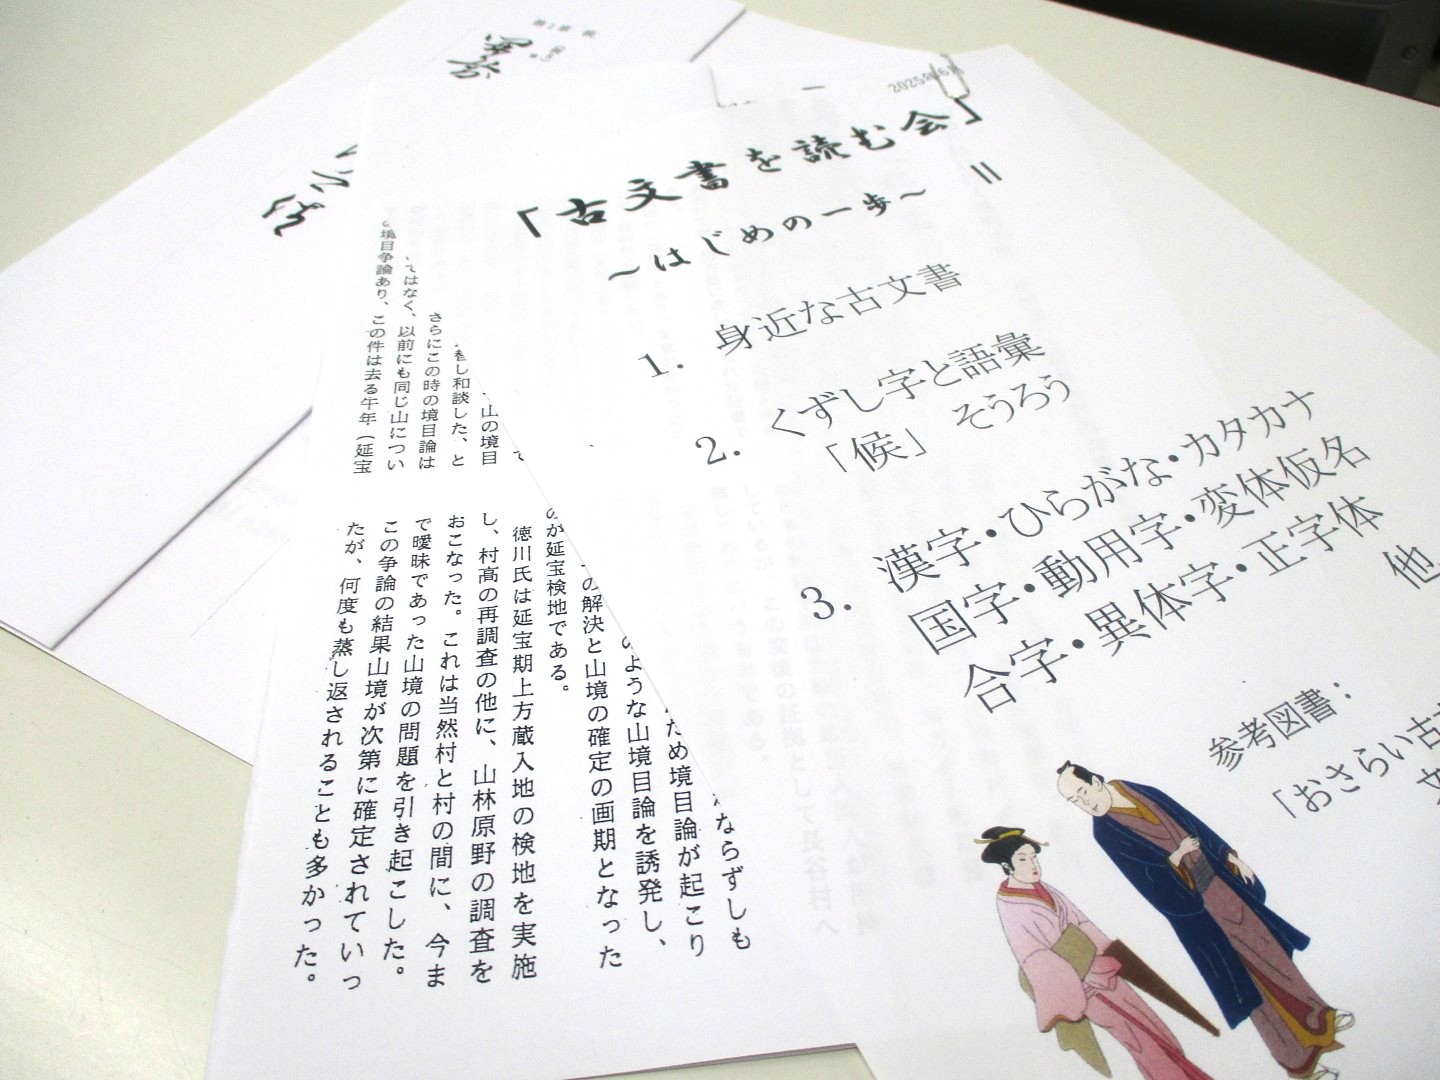 2025年6月
「古文書を読む会」
～はじめの一歩～
1. 身近な古文書
2. くずし字と語彙
「候」 そうろう
3. 漢字・ひらがな・カタカナ
国字・動用字・変体仮名
合字・異体字・正字体
他
参考図書：
「おさらい古
ならずしも
ため境目論が起こり
のような山境目論を誘発し、
の解決と山境の確定の画期となった
のが延宝検地である。
徳川氏は延宝期上方蔵入地の検地を実施
し、村高の再調査の他に、山林原野の調査を
おこなった。これは当然村と村の間に、今ま
で曖昧であった山境の問題を引き起こした。
この争論の結果山境が次第に確定されていっ
たが、何度も蒸し返されることも多かった。
て
山の境目
し和談した、と
さらにこの時の境目論は
てはなく、以前にも同じ山につい
境目争論あり、この件は去る午年（延宝